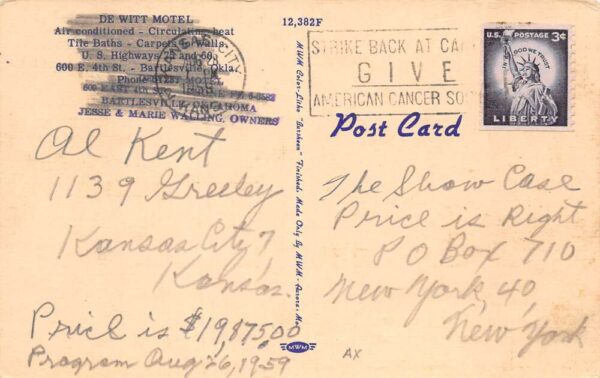 DE WITT MOTEL
Air conditioned - Circulating heat
Tile Baths - Carpets - Walls
U. S. Highways 75 and 60
600 E. 4th St. - Bartlesville, Okla.
Phone
600 EAST 4th
BARTLESVILLE, OKLAHOMA
JESSE & MARIE WALLING, OWNERS
12,382F
KANSAS CITY
1959
STRIKE BACK AT
GIVE
AMERICAN CANCER
U.S. POSTAGE 3¢
IN GOD WE TRUST
LIBERTY
Post Card
MWM Color-Litho "Larsheen" Finished. Made Only By MWM - Aurora, Mo.
MWM
Al Kent
1139 Greeley
Kansas City 7
Kansas.
Price is $19,875.00
Program Aug 26, 1959
The Show Case
Price is Right
P O Box 710
New York, 40,
New York
AX